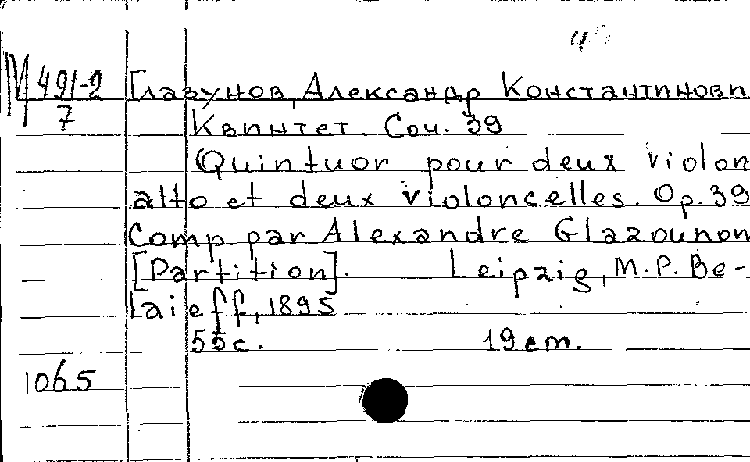 М 491-2
7
Глазунов, Александр Константинови
Квинтет. Соч. 39
Quintuor pour deux violon
alto et deux violoncelles. Op. 39
Comp par Alexandre Glazounon
[Partition]. Leipzig, M.P. Be-
laieff, 1895
55 с. 19 cm.
1065